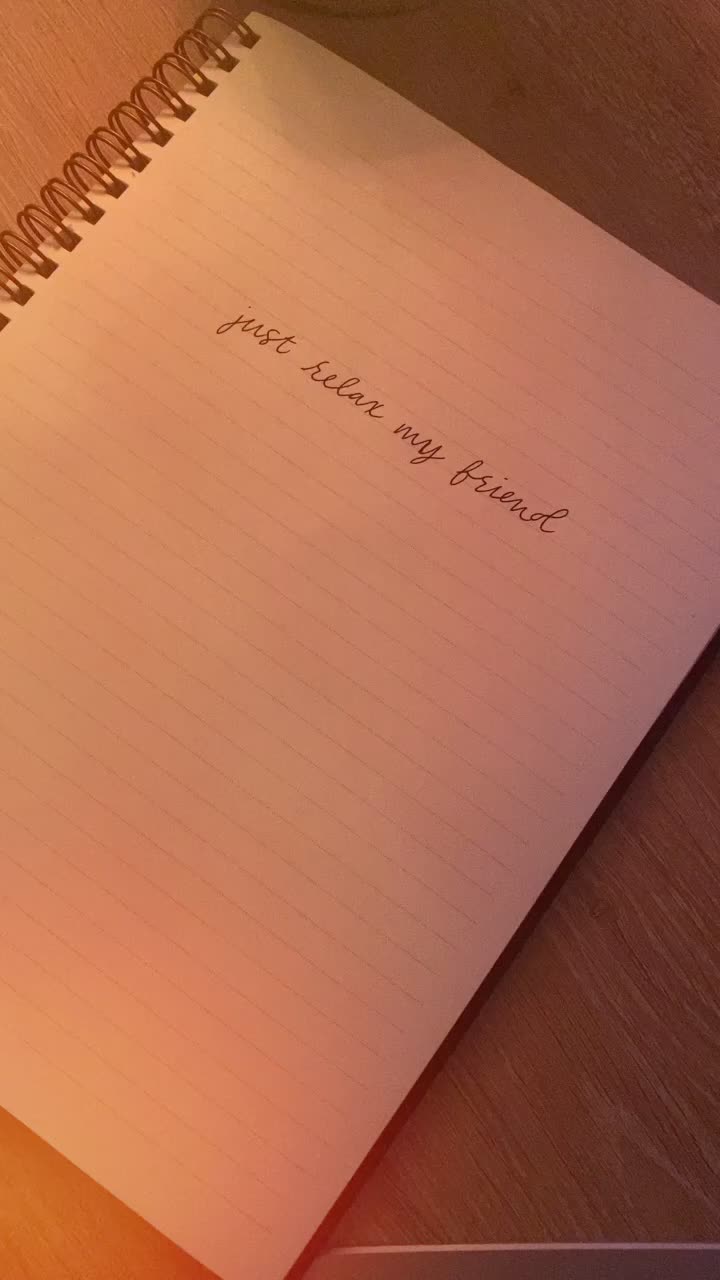 just relax my friend